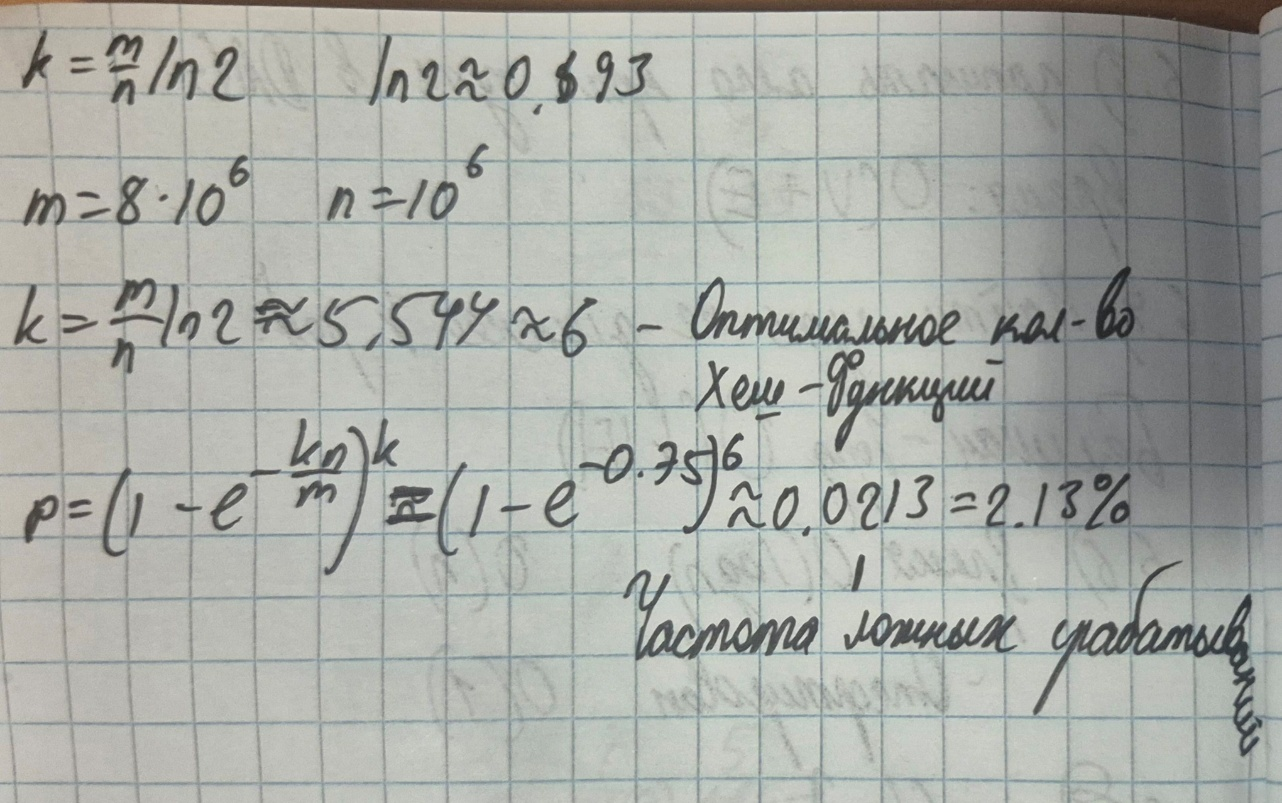 k = m/n ln2   ln2 ≈ 0.693
m = 8·10^6   n = 10^6
k = m/n ln2 ≈ 5,544 ≈ 6 – Оптимальное кол-во
хеш-функций
p = (1 - e^(-kn/m))^k = (1 - e^(-0.75))^6 ≈ 0.0213 = 2.13%
Частота ложных срабатываний